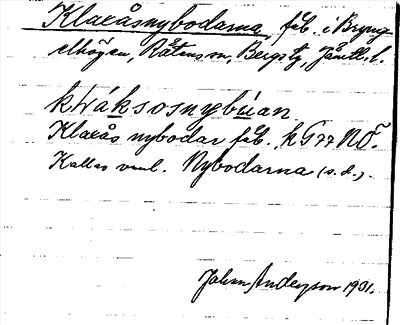 Klaxåsnybodarna, fäb. i Bryng
elhögen, Rätans sn, Bergs tg, Jämtl. l.
klráksosnybúan
Klaxås nybodar fäb. kG77NÖ.
Kallas vanl. Nybodarna (s.d.).
Johan Anderzson 1931.